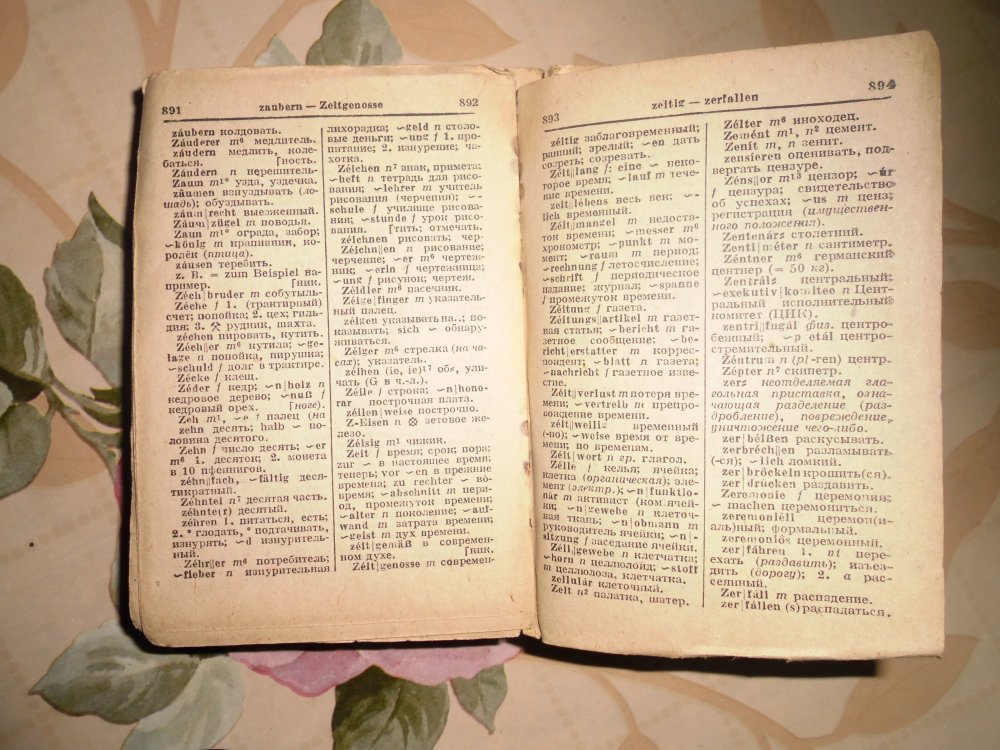 891 zaubern — Zeitgenosse 892
záubern колдовать.
Záuderer m⁶ медлитель.
záudern медлить, коле-
баться. [ность.
Záudern n нерешитель-
Zaum m¹⁰ узда, уздечка.
zäumen взнуздывать (ло-
шадь); обуздывать.
záun|recht выезженный.
Záum|zügel m поводья.
Zaun m¹⁰ ограда, забор;
~könig m крапивник, ко-
ролёк (птица).
záusen теребить.
z. B. = zum Beispiel на-
пример. [ник.
Zéch|bruder m собутыль-
Zéche f 1. (трактирный)
счет; попойка; 2. цех; гиль-
дия; 3. ⚒ рудник, шахта.
zéchen пировать, кутить.
Zéch||er m⁶ кутила; ~ge-
lage n попойка, пирушка;
~schuld f долг в трактире.
Zécke f клещ.
Zéder f кедр; ~n|holz n
кедровое дерево; ~nuß f
кедровый орех. [ноге).
Zeh m¹, ~e f палец (на
zehn десять; halb ~ по-
ловина десятого.
Zehn f число десять; ~er
m⁶ 1. десяток; 2. монета
в 10 пфеннигов.
zéhn||fach, ~fältig деся-
тикратный.
Zéhntel n⁷ десятая часть.
zéhnte(r) десятый.
zéhren 1. питаться, есть;
2. * глодать, * подтачивать,
изнурять; ~d изнуритель-
ный.
Zéhr||er m⁶ потребитель;
~fieber n изнурительная
лихорадка; ~geld n столо-
вые деньги; ~ung f 1. про-
питание; 2. изнурение; ча-
хотка.
Zéichen n⁷ знак, примета;
~heft n тетрадь для рисо-
вания; ~lehrer m учитель
рисования (черчения); ~-
schule f училище рисова-
ния; ~stunde f урок рисо-
вания. [тить; отмечать.
zéichnen рисовать; чер-
Zéichn||en n рисование;
черчение; ~er m⁶ чертеж-
ник; ~erin f чертежница;
~ung f рисунок, чертеж.
Zéidler m⁶ пасечник.
Zéige|finger m указатель-
ный палец.
zéigen указывать на..; по-
казывать; sich ~ обнару-
живаться.
Zéiger m⁶ стрелка (на ча-
сах); указатель.
zéihen (ie, ie)¹⁷ обв, ули-
чать (G в ч.-л.).
Zéile f строка; ~n|hono-
rar построчная плата.
zéilen|weise построчно.
Z-Eisen n ⊗ зетовое же-
лезо.
Zéisig m¹ чижик.
Zeit f время; срок; пора;
zur ~ в настоящее время;
теперь; vor ~en в прежние
времена; zu rechter ~ во-
время; ~abschnitt m пери-
од, промежуток времени;
~alter n поколение; ~auf-
wand m затрата времени;
~geist m дух времени.
zéit|gemäß в современ-
ном духе. [ник.
Zéit|genosse m современ-
893 zeitig — zerfallen 894
zéitig заблаговременный;
ранний; зрелый; ~en дать
созреть; созревать.
Zéit||lang f: eine ~ неко-
торое время; ~lauf m тече-
ние времени.
zeit|lébens весь век; ~-
lich временный.
Zéit||mangel m недоста-
ток времени; ~messer m⁶
хронометр; ~punkt m мо-
мент; ~raum m период;
~rechnung f летосчисление;
~schrift f периодическое
издание; журнал; ~spanne
f промежуток времени.
Zéitung f газета.
Zéitungs||artikel m газет-
ная статья; ~bericht m га-
зетное сообщение; ~be-
richt|erstatter m коррес-
пондент; ~blatt n газета;
~nachricht f газетное изве-
стие.
Zéit||verlust m потеря вре-
мени; ~vertreib m препро-
вождение времени.
zéit||weilig временный
(-но); ~weise время от вре-
мени; по временам.
Zéit|wort n гр. глагол.
Zélle f келья; ячейка;
клетка (органическая); эле-
мент (электр.); ~n|funktio-
när m активист (ком.)ячей-
ки; ~n|gewebe n клеточ-
ная ткань; ~n|obmann m
руководитель ячейки; ~n|-
sitzung f заседание ячейки.
Zéll||gewebe n клетчатка;
~horn n целлюлоид; ~stoff
m целлюлоза, клетчатка.
zellulár клеточный.
Zelt n² палатка, шатер.
Zélter m⁶ иноходец.
Zemént m¹, n² цемент.
Zenít m, n зенит.
zensieren оценивать, под-
вергать цензуре.
Zéns||or m¹³ цензор; ~úr
f цензура; свидетельство
об успехах; ~us m ценз;
регистрация (имуществен-
ного положения).
Zentenár столетний.
Zenti|méter n сантиметр.
Zéntner m⁶ германский
центнер (= 50 кг).
Zentrál центральный;
~exekutiv|komitee n Цент-
ральный исполнительный
комитет (ЦИК).
zentri||fugál физ. центро-
бежный; ~petál центро-
стремительный.
Zéntrum n (pl -ren) центр.
Zépter n⁷ скипетр.
zer неотделяемая гла-
гольная приставка, озна-
чающая разделение (раз-
дробление), повреждение,
уничтожение чего-либо.
zer|béißen раскусывать.
zerbréch||en разламывать
(-ся); ~lich ломкий.
zer|bröckeln крошить(ся).
zer|drücken раздавить.
Zeremonie f церемония;
~ machen церемониться.
zeremoniéll церемон(и-
аль)ный; формальный.
zeremoniös церемонный.
zer|fáhren 1. vt пере-
ехать (раздавить); изъез-
дить (дорогу); 2. a рас-
сеянный.
Zer|fáll m распадение.
zer|fállen (s) распадаться.